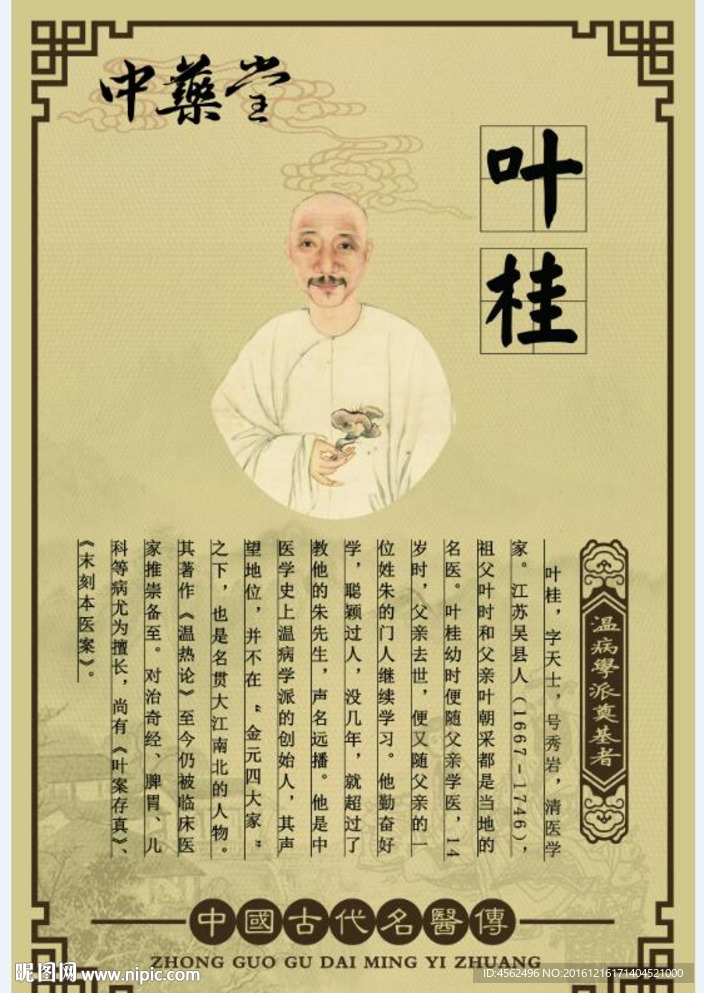 中藥堂
叶桂
温病學派奠基者
叶桂，字天士，号秀岩，清医学
家。江苏吴县人（1667-1746），
祖父叶时和父亲叶朝采都是当地的
名医。叶桂幼时便随父亲学医，14
岁时，父亲去世，便又随父亲的一
位姓朱的门人继续学习。他勤奋好
学，聪颖过人，没几年，就超过了
教他的朱先生，声名远播。他是中
医学史上温病学派的创始人，其声
望地位，并不在“金元四大家”
之下，也是名贯大江南北的人物。
其著作《温热论》至今仍被临床医
家推崇备至。对治奇经、脾胃、儿
科等病尤为擅长，尚有《叶案存真》、
《末刻本医案》。
中國古代名醫傳
ZHONG GUO GU DAI MING YI ZHUANG
昵图网 www.nipic.com
ID:4562496 NO:20161216171404521000